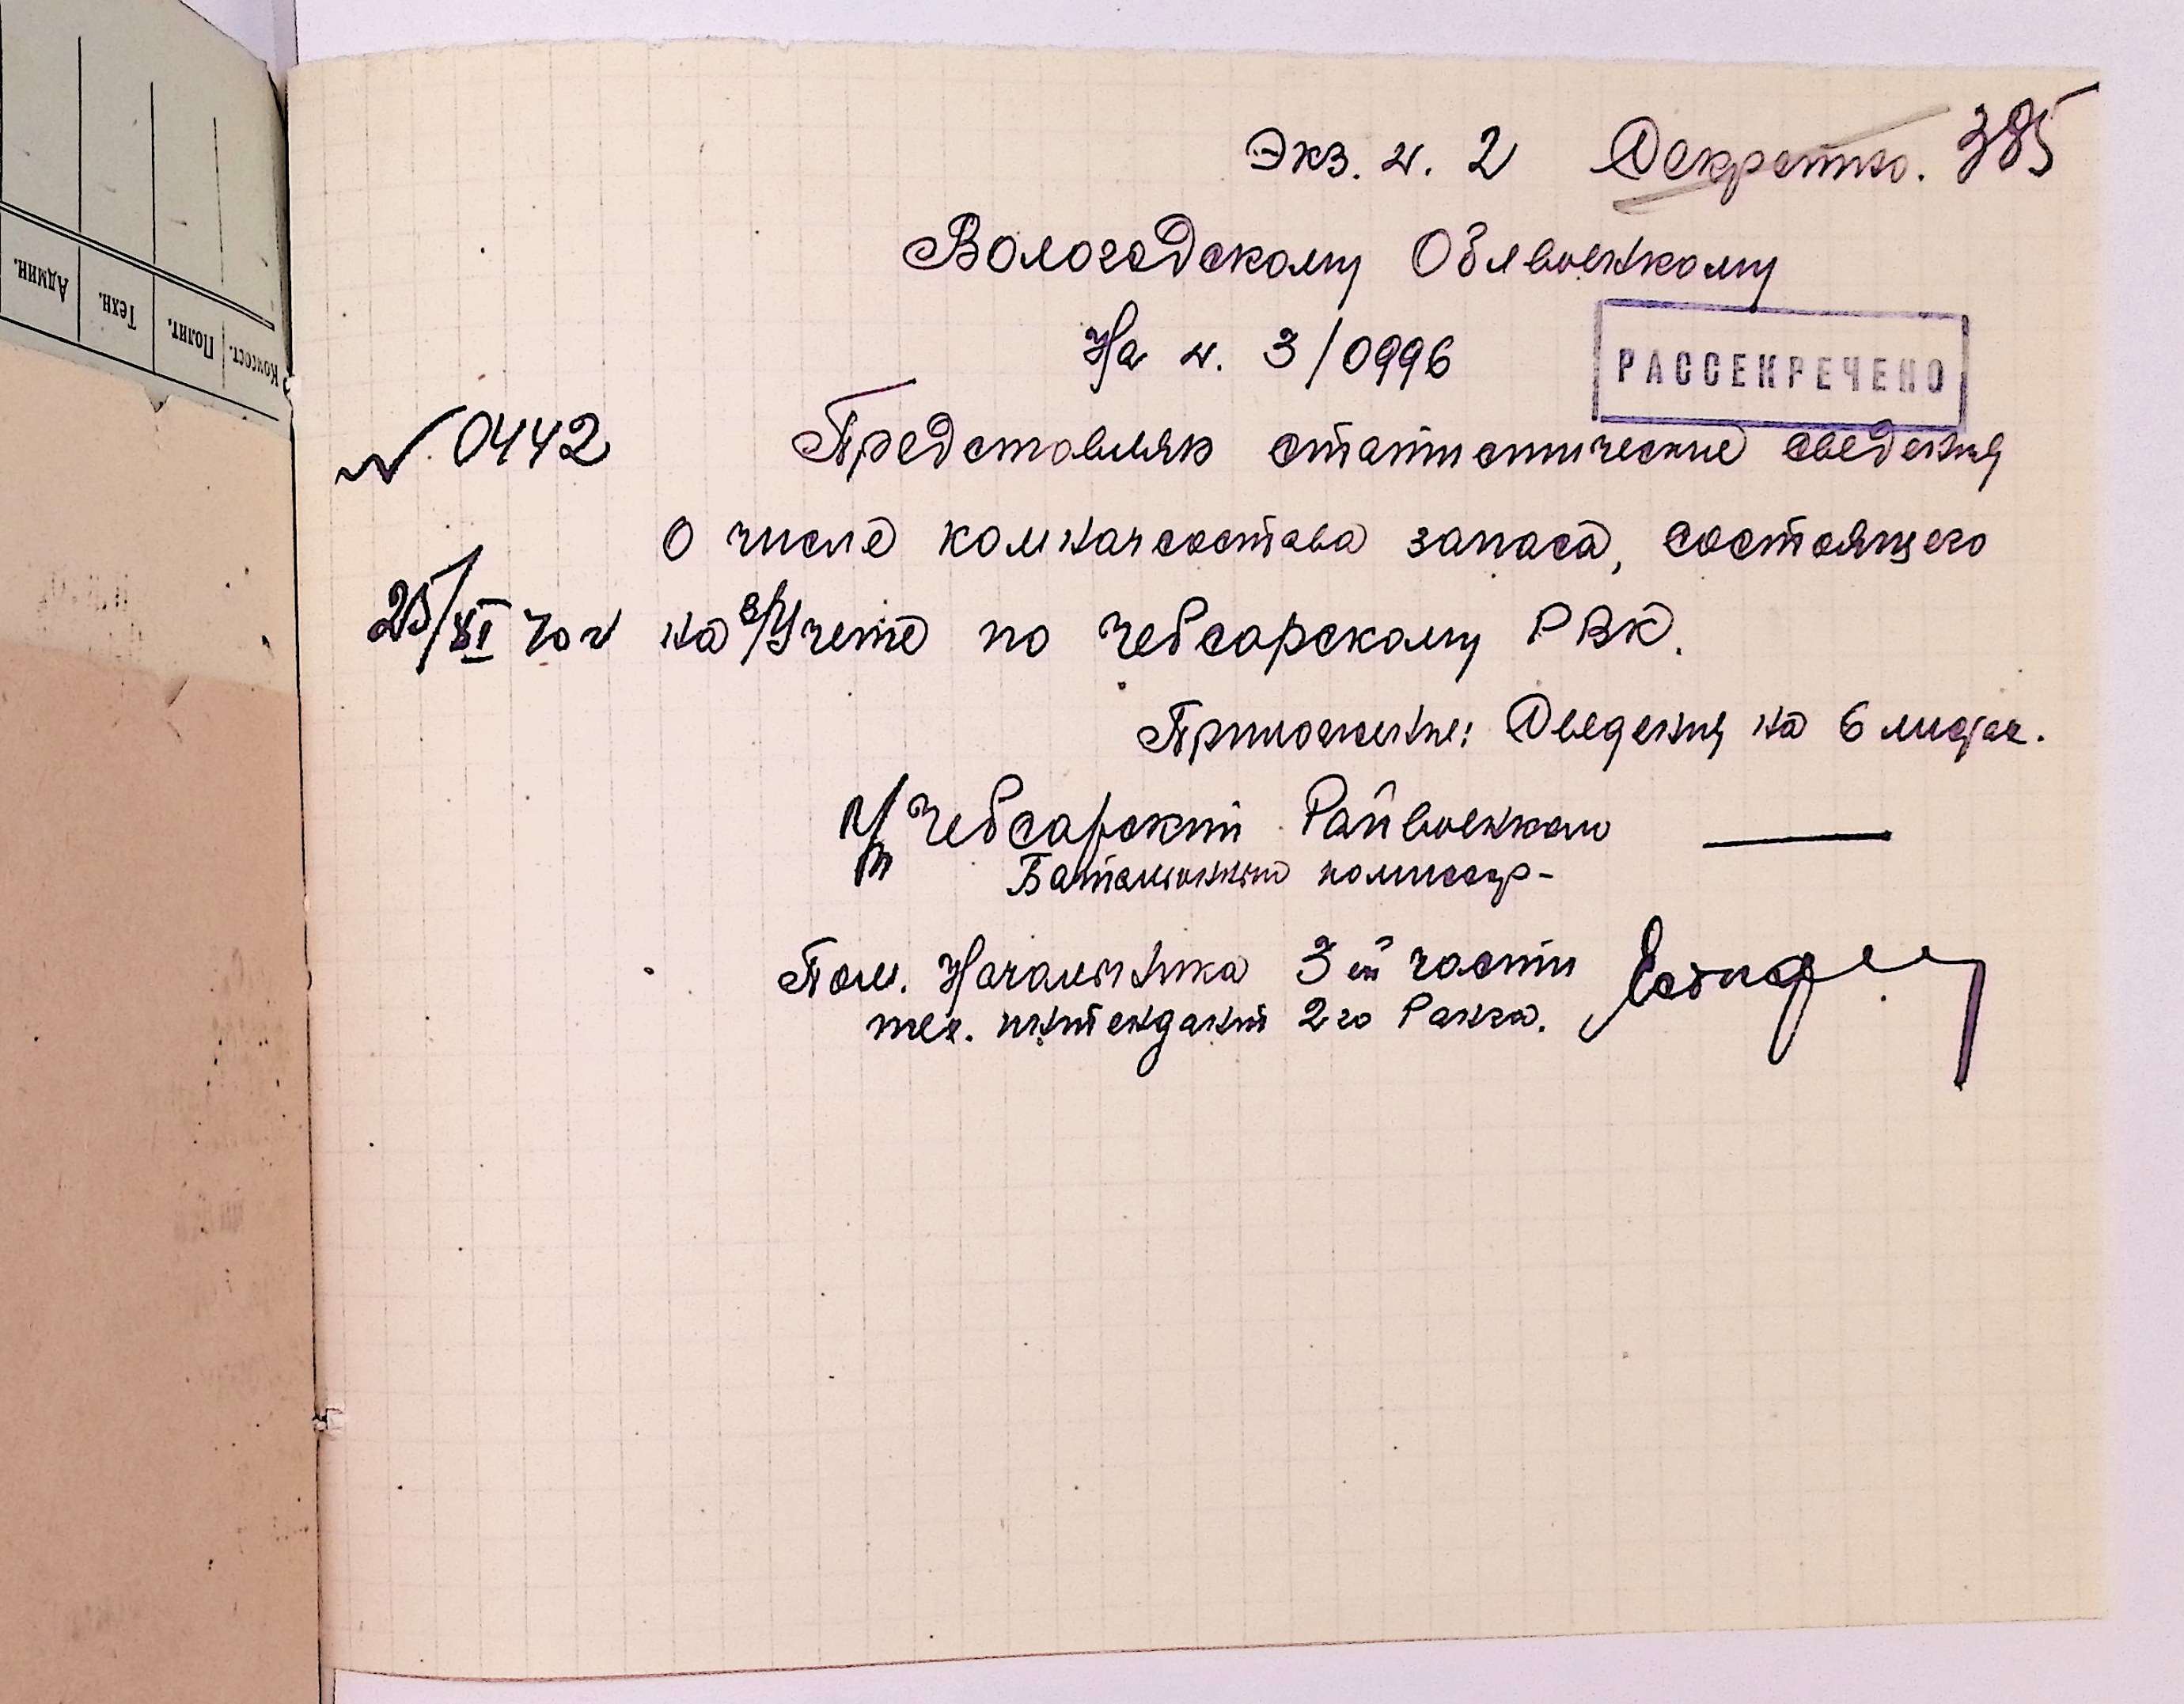 Экз. N. 2 Секретно. 385
Вологодскому Облвоенкому
На N. 3/0996
РАССЕКРЕЧЕНО
N 0442 Представляю статистические сведения
о числе комначсостава запаса, состоящего
25/XI 40 г на в/учете по Чебсарскому РВК.
Приложение: Сведения на 6 листах.
Чебсарский Райвоенком
Батальонный комиссар-
Пом. Начальника 3 ей части
тех. интендант 2го Ранга.
Админ.
Техн.
Полит.
Комсост.